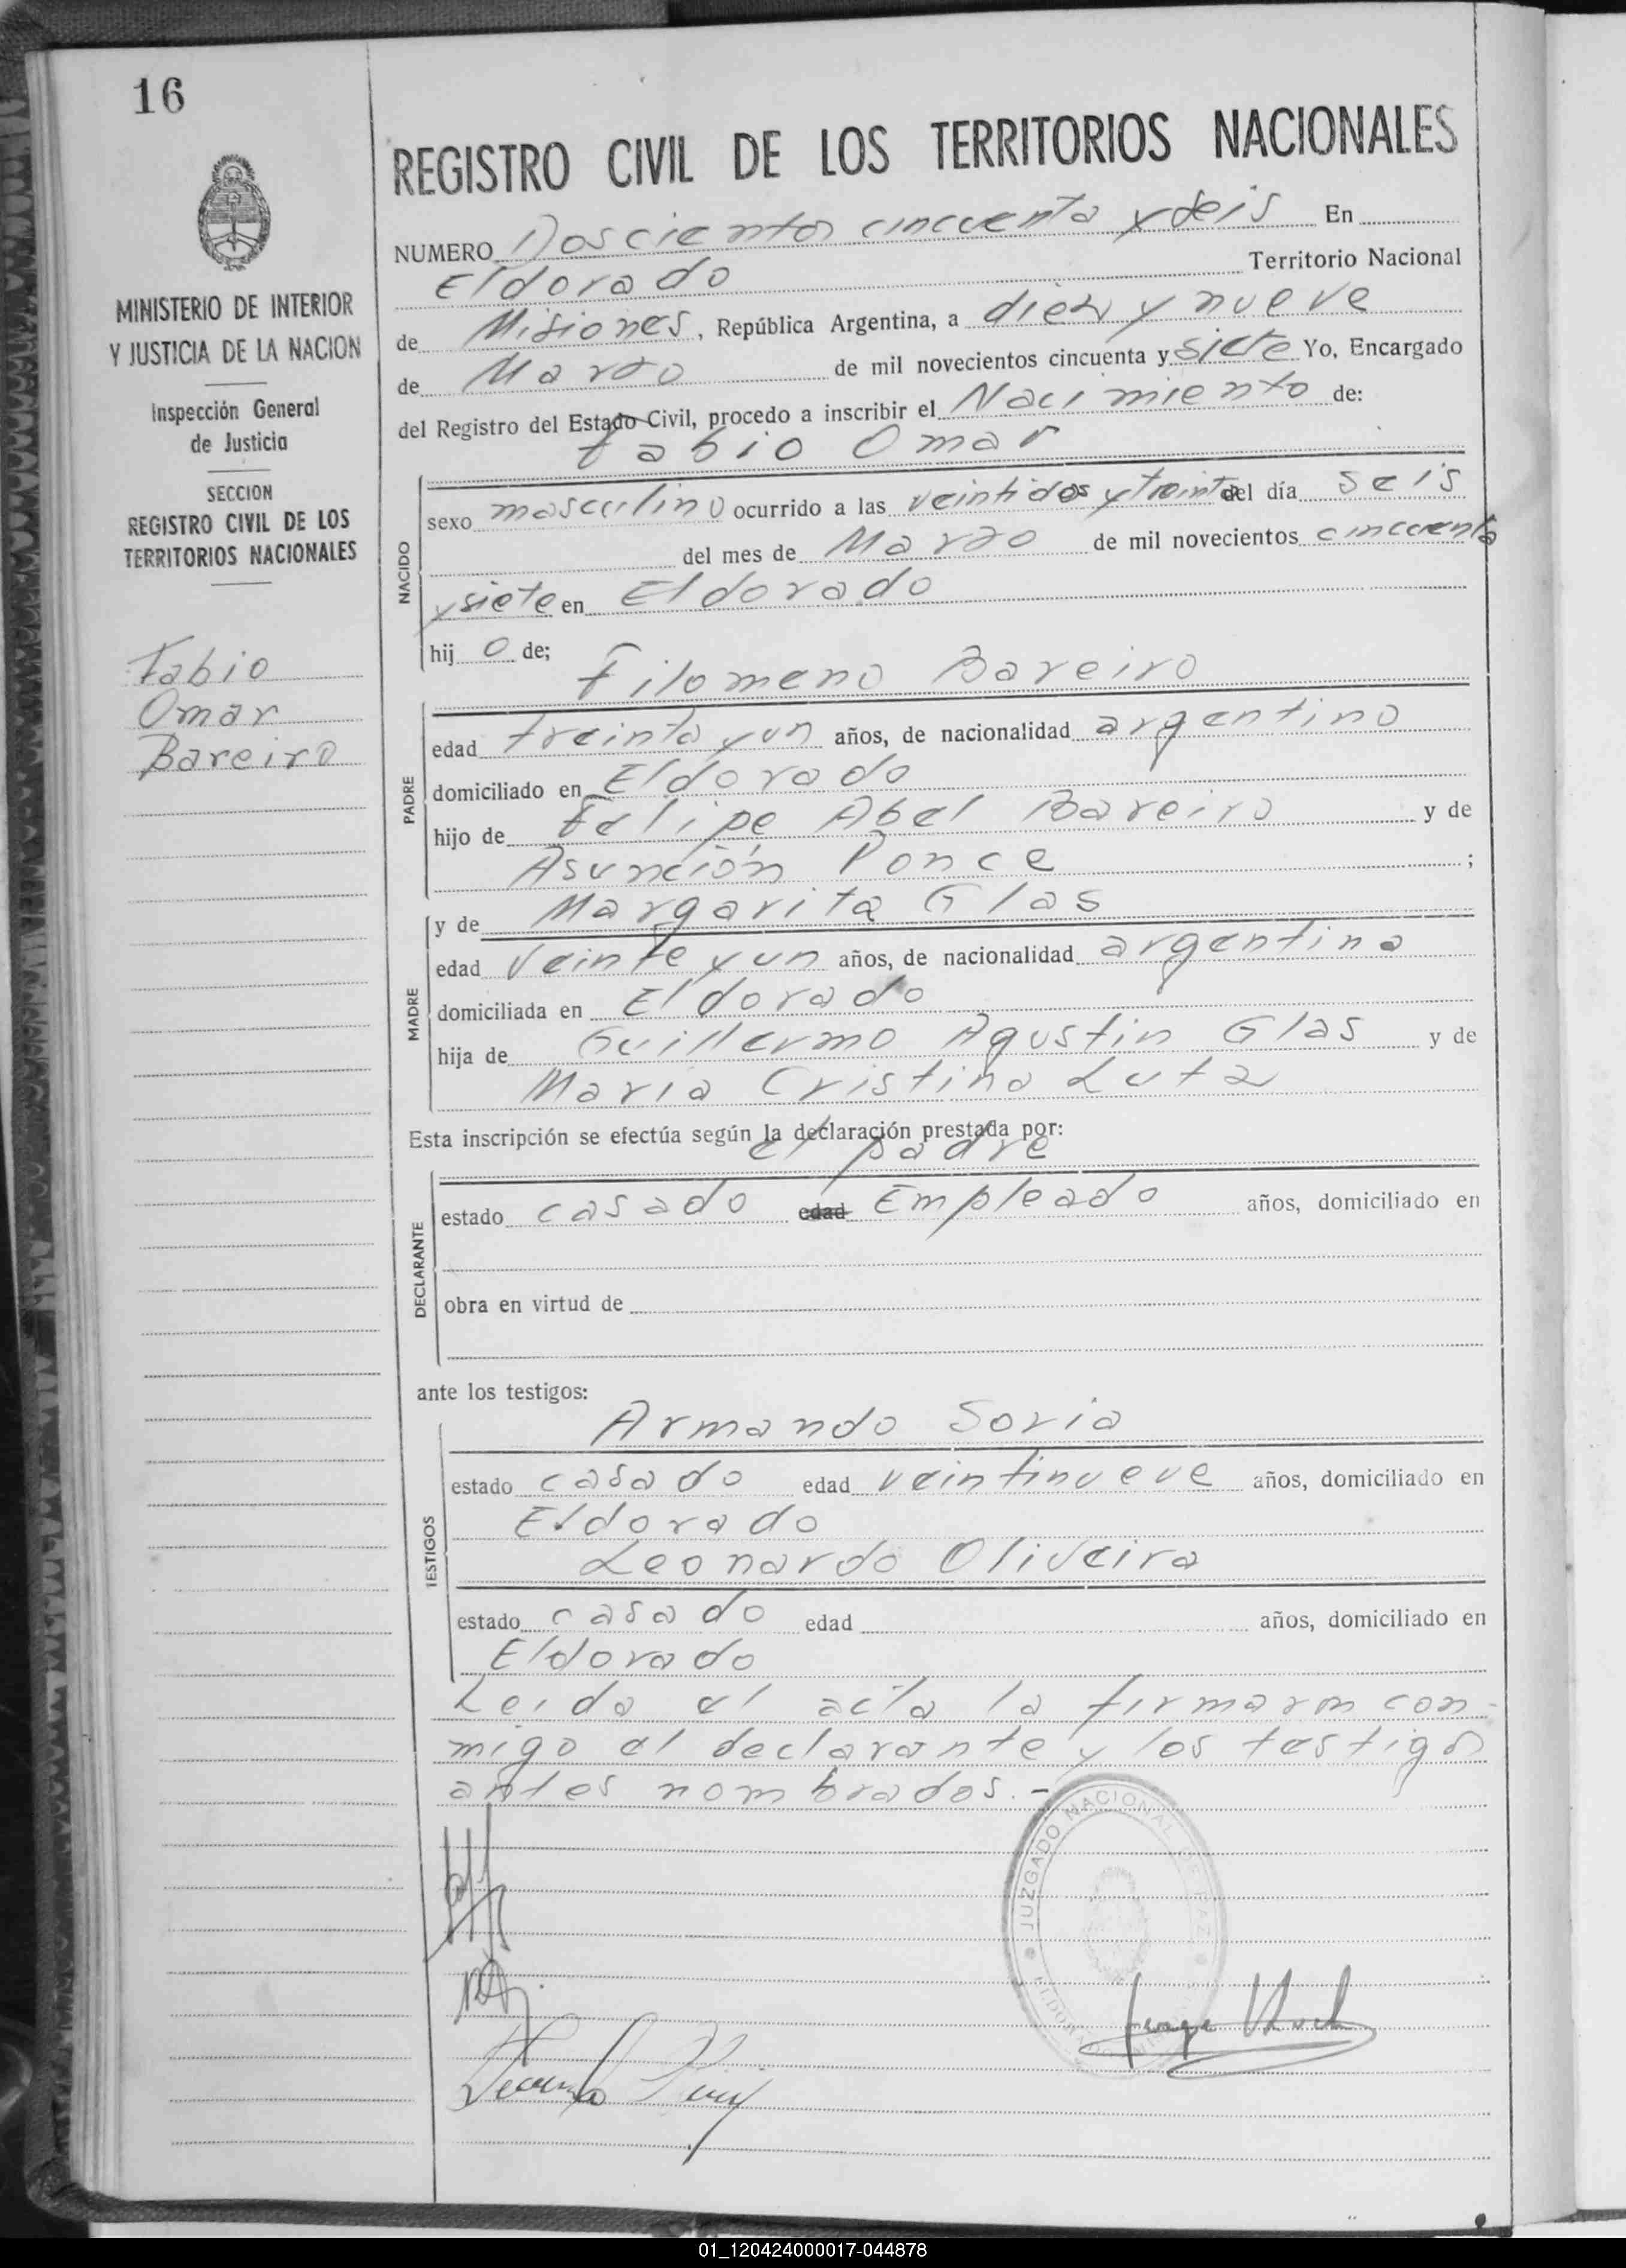 16
REGISTRO CIVIL DE LOS TERRITORIOS NACIONALES
NUMERO Doscientos cincuenta y seis En
Eldorado Territorio Nacional
de Misiones, República Argentina, a diez y nueve
de Marzo de mil novecientos cincuenta y siete Yo, Encargado
del Registro del Estado Civil, procedo a inscribir el Nacimiento de:
Fabio Omar
MINISTERIO DE INTERIOR
Y JUSTICIA DE LA NACION
Inspección General
de Justicia
SECCION
REGISTRO CIVIL DE LOS
TERRITORIOS NACIONALES
Fabio
Omar
Bareiro
NACIDO
sexo masculino ocurrido a las veintidos y treinta del día seis
del mes de Marzo de mil novecientos cincuenta
y siete en Eldorado
hij o de;
Filomeno Bareiro
PADRE
edad treinta y un años, de nacionalidad argentino
domiciliado en Eldorado
hijo de Felipe Abel Bareiro y de
Asunción Ponce ;
MADRE
y de Margarita Glas
edad veinte y un años, de nacionalidad argentina
domiciliada en Eldorado
hija de Guillermo Agustin Glas y de
Maria Cristina Lutz
Esta inscripción se efectúa según la declaración prestada por:
el padre
DECLARANTE
estado casado edad Empleado años, domiciliado en
obra en virtud de
ante los testigos:
Armando Soria
TESTIGOS
estado casado edad veintinueve años, domiciliado en
Eldorado
Leonardo Oliveira
estado casado edad años, domiciliado en
Eldorado
Leida el acta la firmaron con-
migo el declarante y los testigos
antes nombrados.-
JUZGADO NACIONAL DE PAZ
ELDORADO
01_120424000017-044878